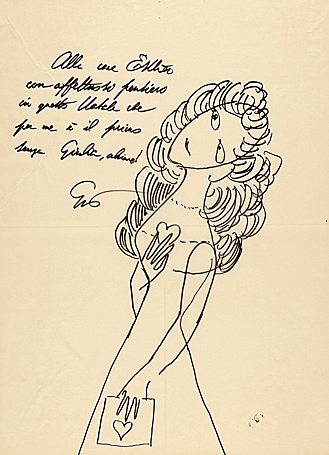 Alla cara
con affettuoso pensiero
in questo Natale che
per me è il primo
senza Giulia, ahimé!